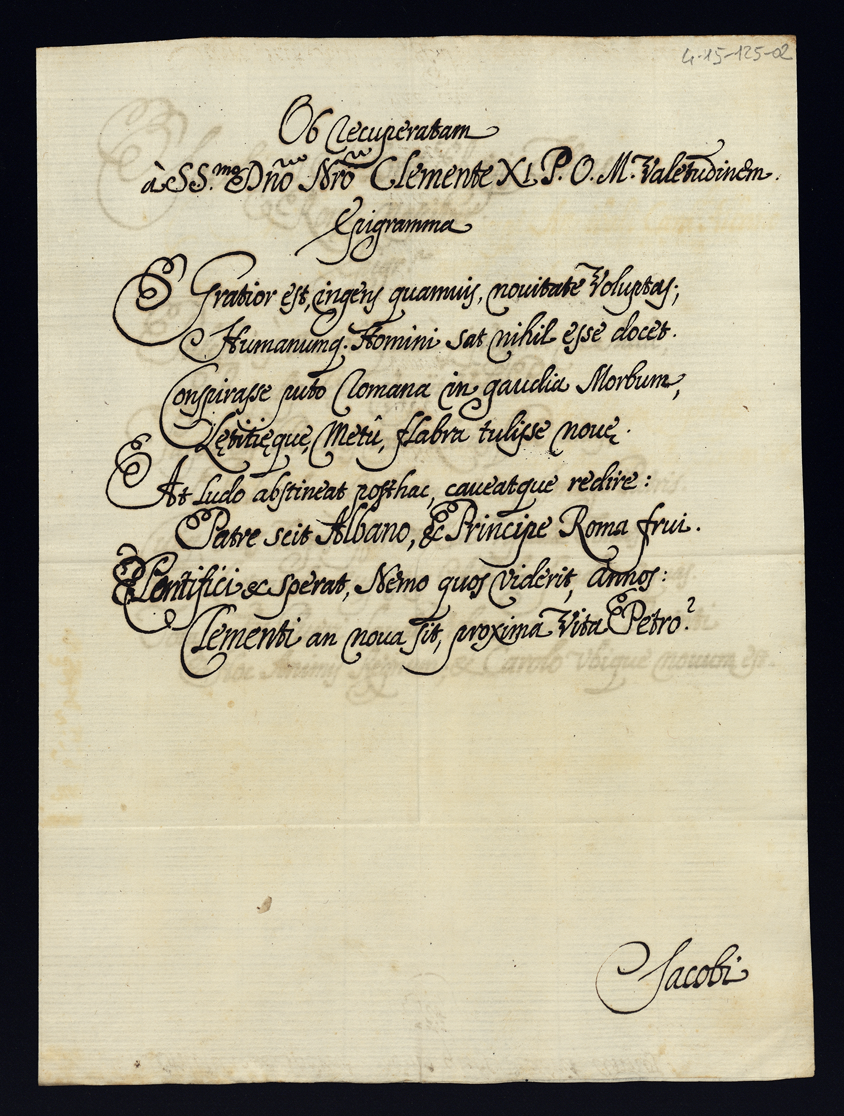 4-15-125-02
Ob recuperatam
à SS.mo Dño Nrõ Clemente XI. P. O. M. Valetudinem.
Epigramma
Gratior est, ingens quamuis, nouitate Voluptas;
Humanumq. Homini sat nihil esse docet.
Conspirasse puto Romana in gaudia Morbum,
Lętitięque, Metû, flabra tulisse nouę.
At Ludo abstineat posthac, caueatque redire:
Patre scit Albano, & Principe Roma frui.
Pontifici & sperat, Nemo quos viderit, annos:
Clementi an noua sit, proxima Vita Petro?
Jacobi